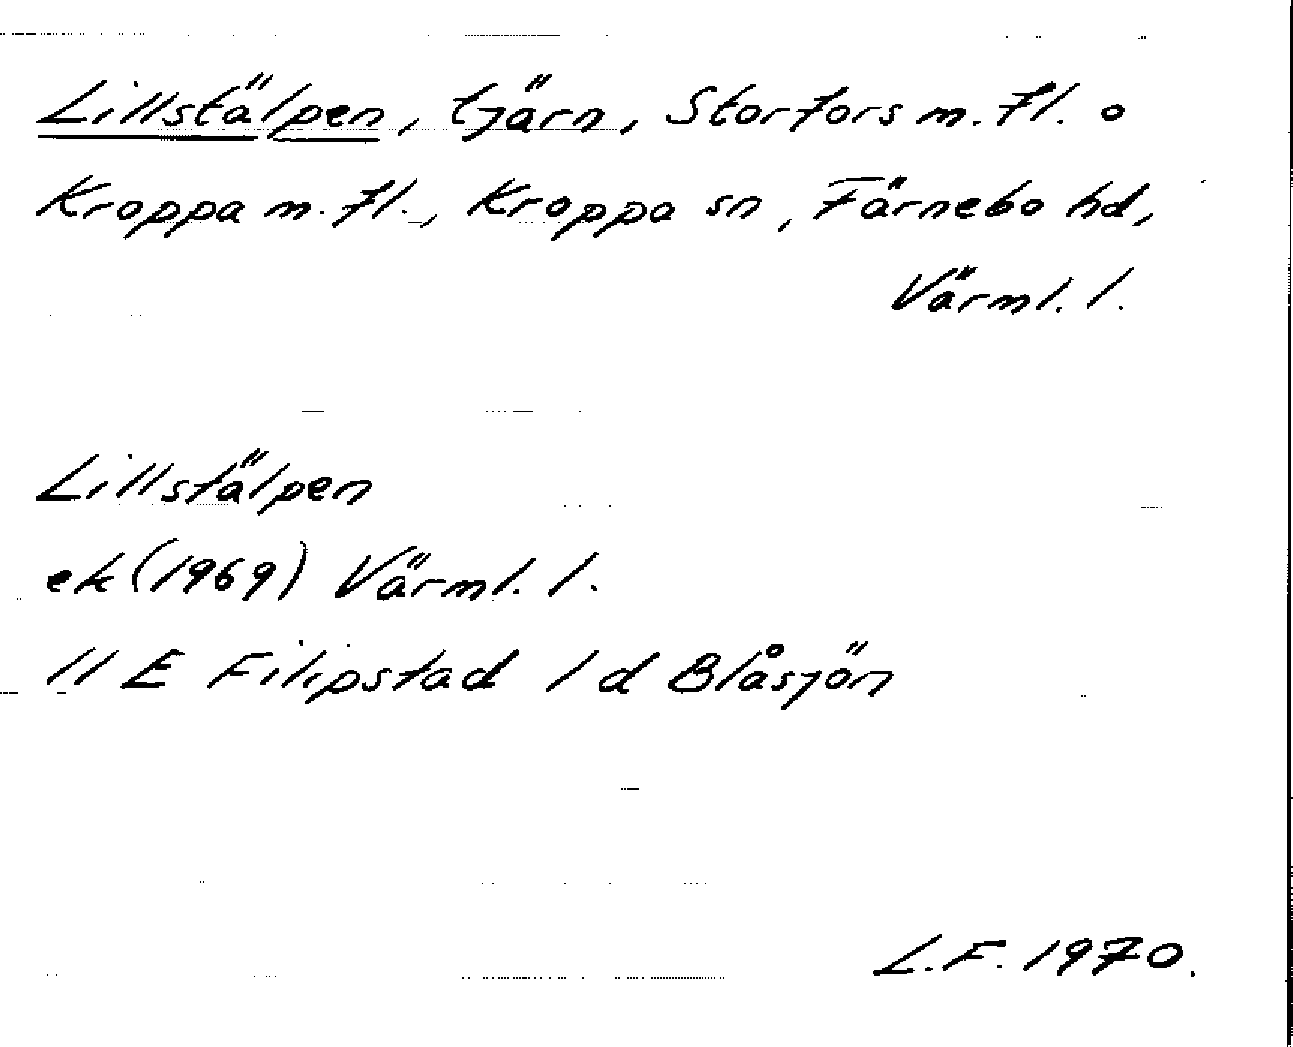 Lillstälpen, tjärn, Storfors m. fl. o
Kroppa m. fl., Kroppa sn, Färnebo hd,
Värml. l.
Lillstälpen
ek (1969) Värml. l.
11 E Filipstad 1 d Blåsjön
L.F. 1970.